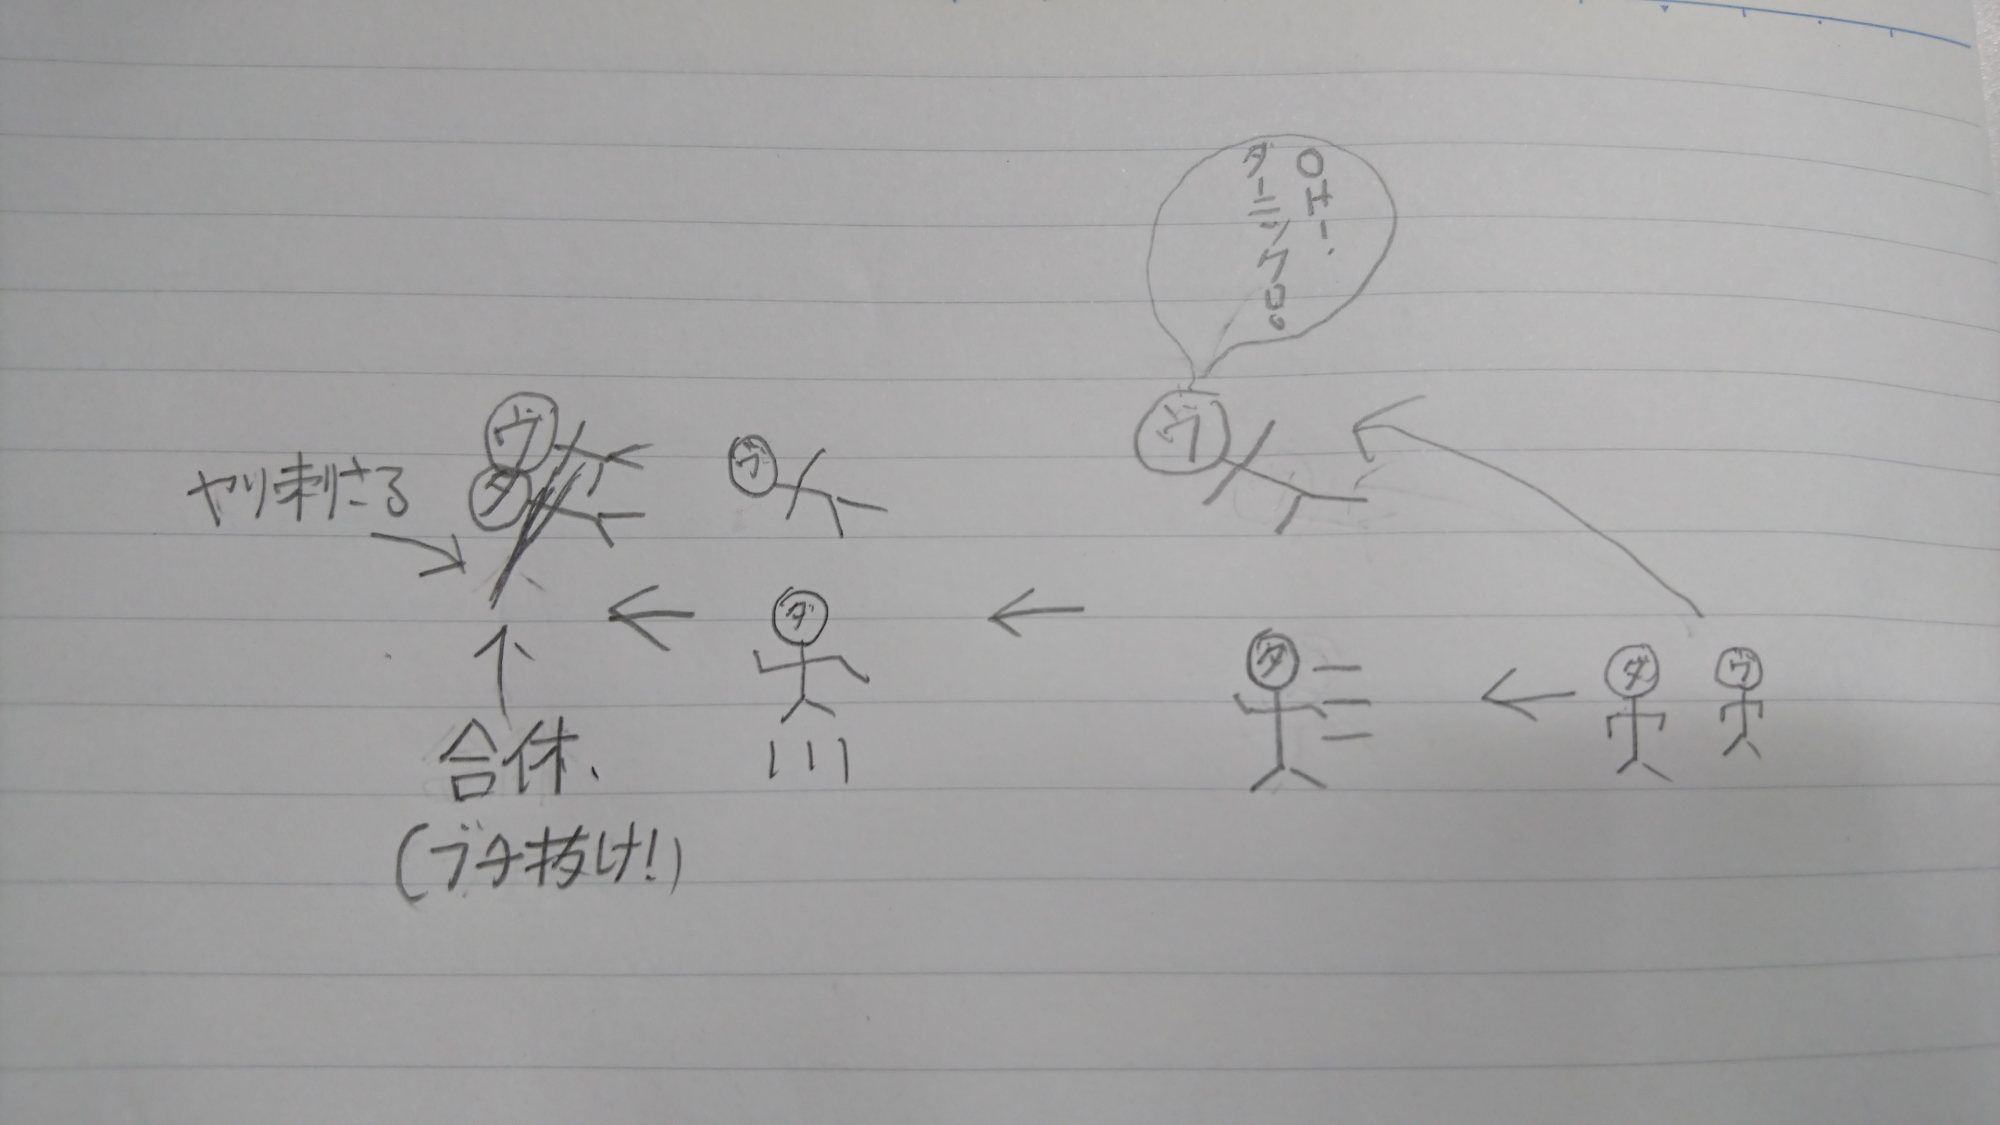 ダーニックロ。
ヴ
ヴ
ヴ
ダ
ヤリ刺さる
ダ
ダ
ダ
ヴ
合休、
(ブチ抜け!)